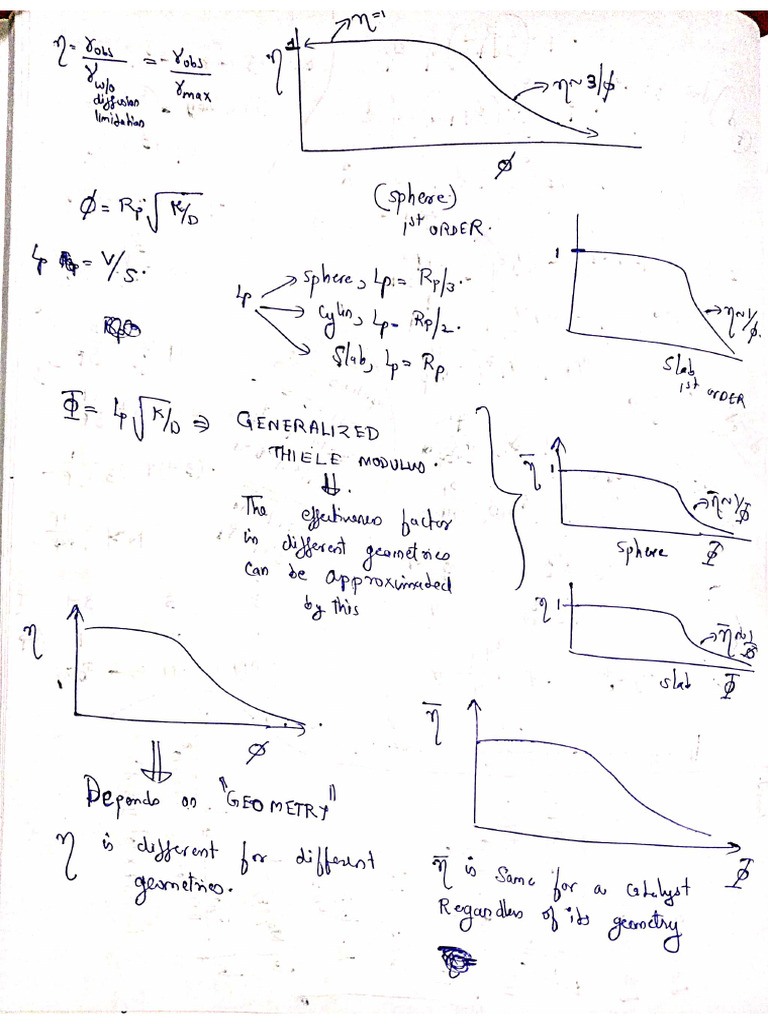 η = r_obs / r_w/o diffusion limitation = r_obs / r_max
η
1
η=1
η ~ 3/ϕ
ϕ
(sphere)
1st ORDER.
ϕ = Rp √K/D
Lp = V/S.
Lp
Sphere, Lp = Rp/3.
Cylin, Lp = Rp/2.
Slab, Lp = Rp
1
η ~ 1/ϕ.
Slab
1st ORDER
Φ̄ = Lp √K/D ⇒ GENERALIZED
THIELE MODULUS.
⇓.
The effectiveness factor
in different geometries
can be approximated
by this
η̄
1
η̄ ~ 1/Φ̄
Sphere
Φ̄
η
1
η̄ ~ 1/Φ̄
Slab
Φ̄
η
ϕ
⇓
Depends on "GEOMETRY"
η is different for different
geometries.
η̄
Φ̄
η̄ is same for a catalyst
Regardless of its geometry